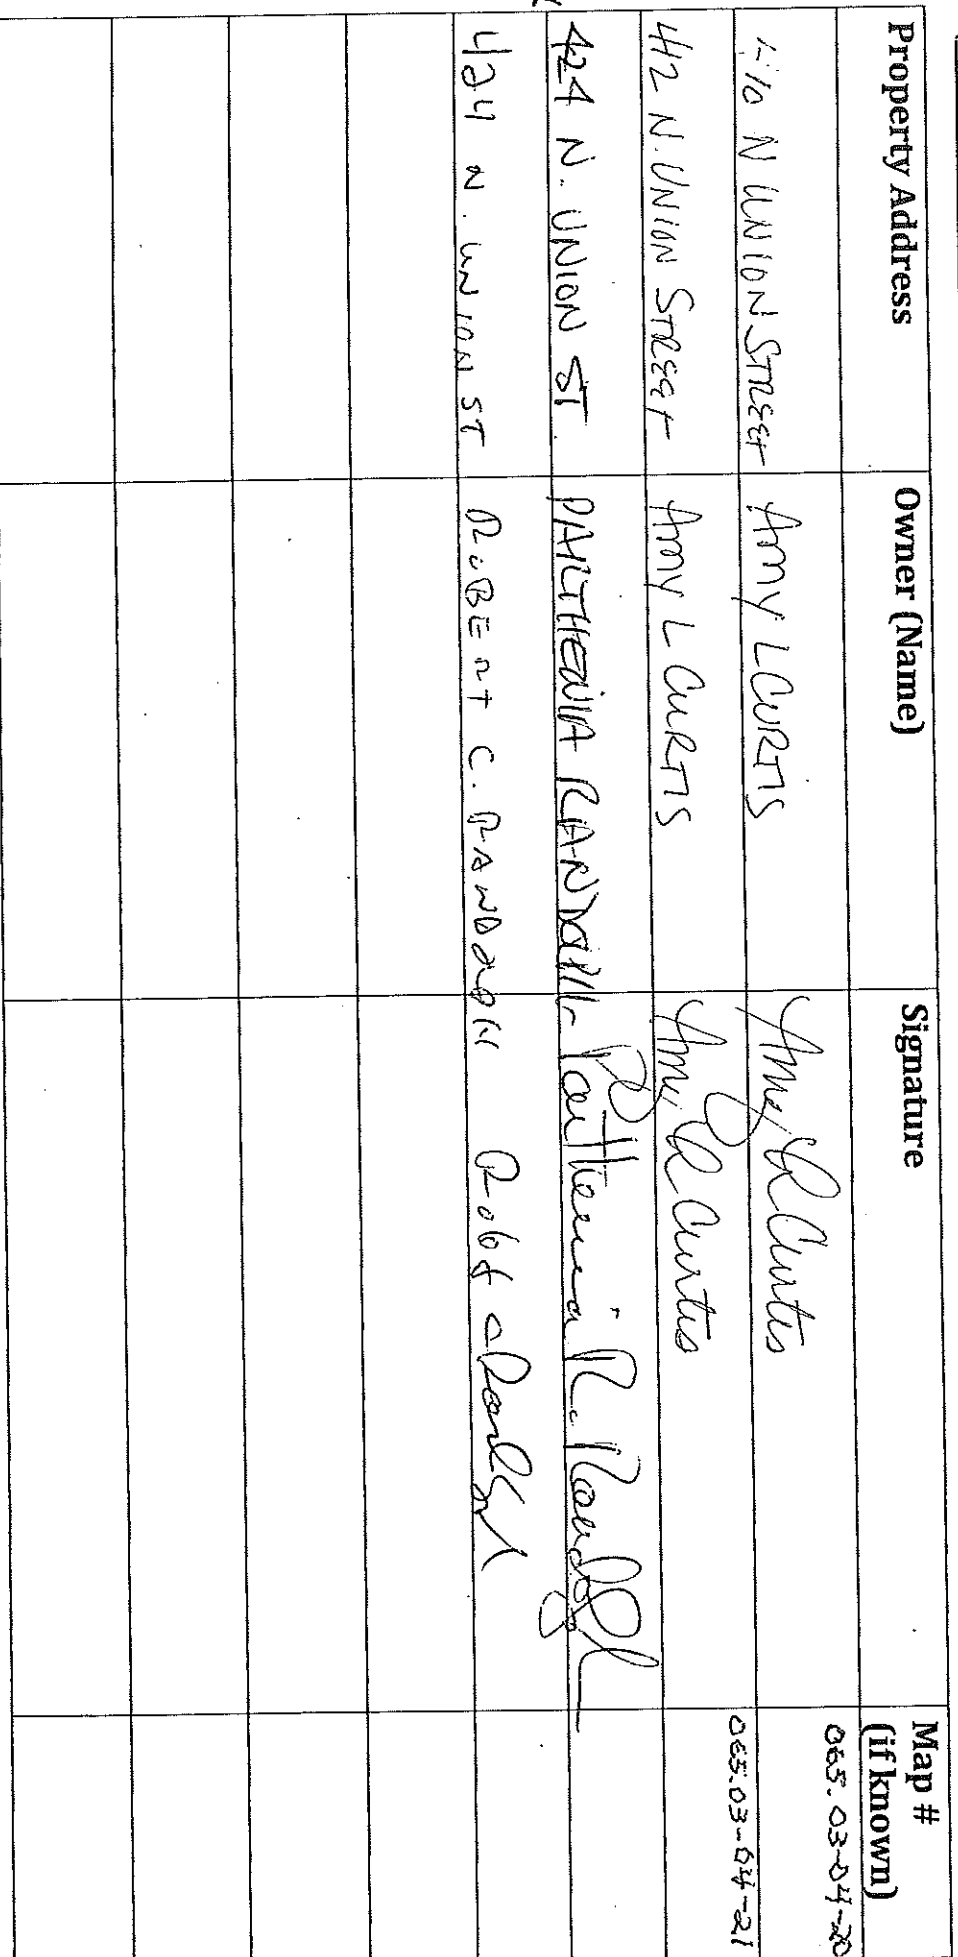 Property Address Owner (Name) Signature Map #
(if known)
N UNION STREET AMY L CURTIS Amy L Curtis 065.03-04-20
412 N. UNION STREET AMY L CURTIS Amy L Curtis 065.03-04-21
424 N. UNION ST. PARTHENIA RANDALL Parthenia R. Randall
424 N. UNION ST ROBERT C. RANDALL